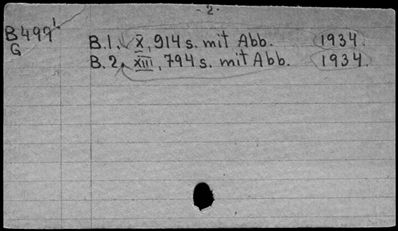 - 2 -
B499¹
G
B.1. X, 914 s. mit Abb. (1934.
B.2. XIII, 794 s. mit Abb. (1934.